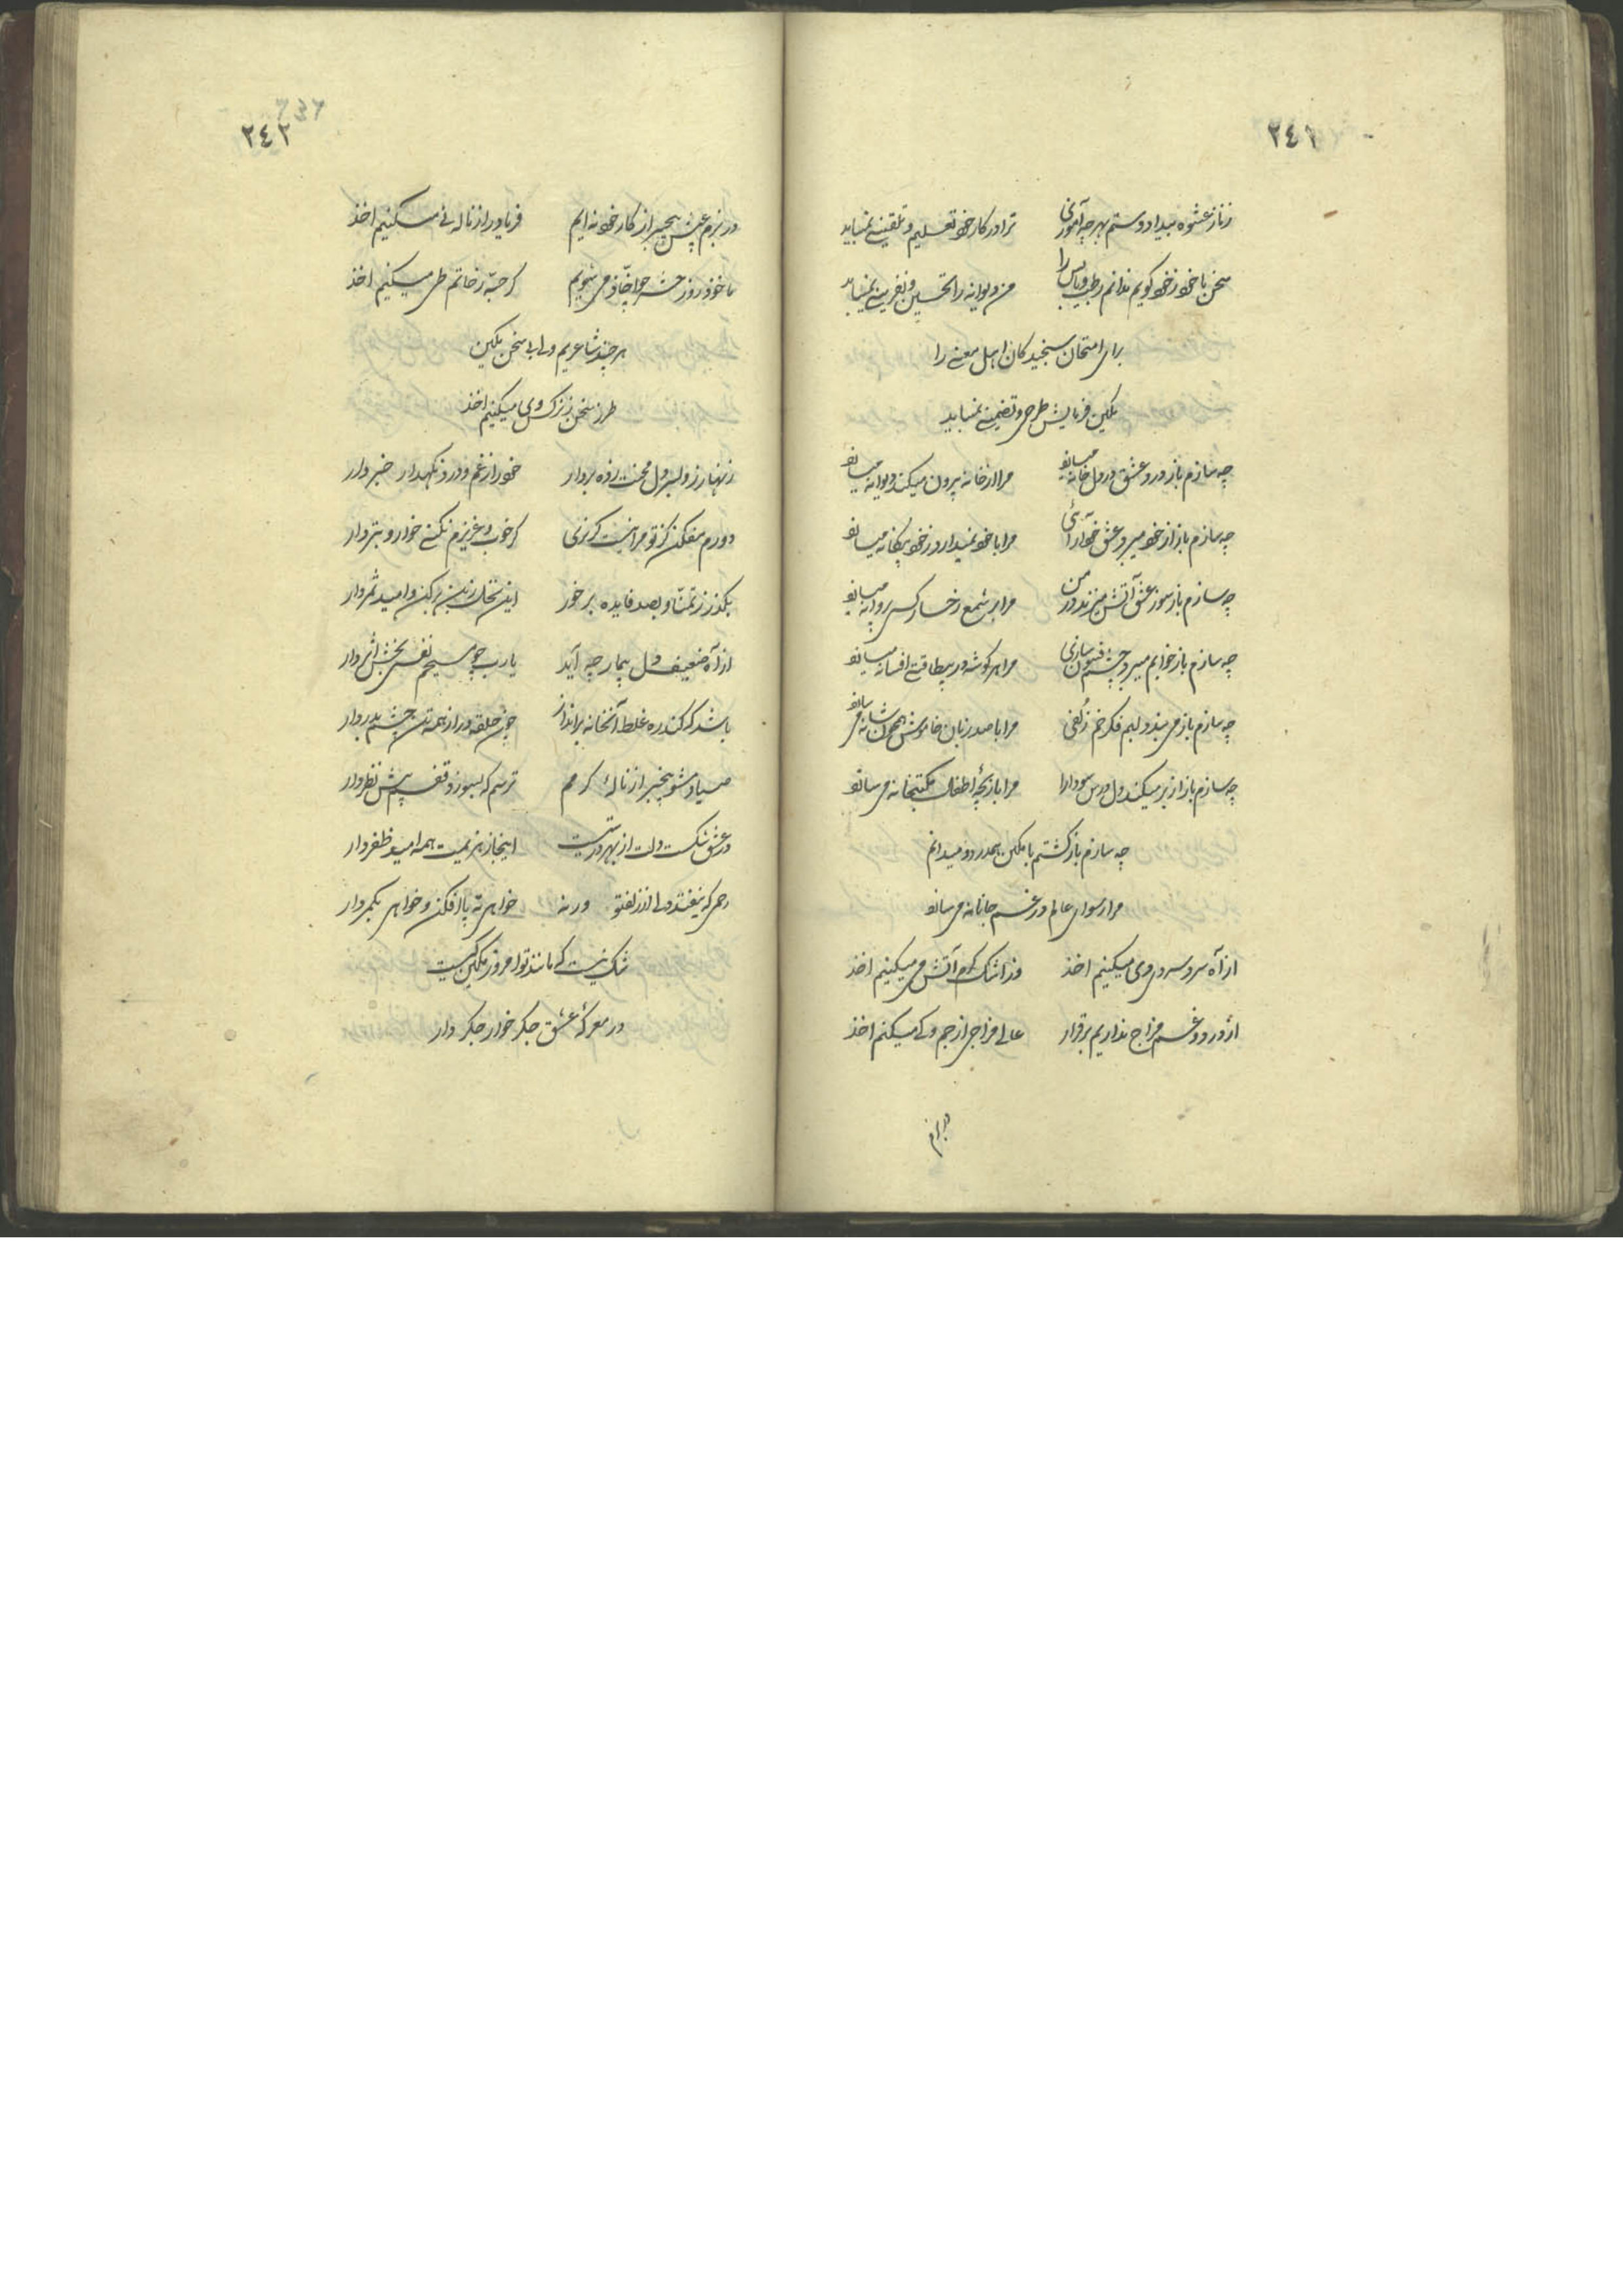 ٢٤١
ز ناز عشوه بیداد و ستم بهر چه آموزی ترا در کار خود تعلیم و تلقینی نمیباید
سخن با خود ز خود کویم ندانم رطب و یابس را من دیوانه را تحسین و نفرینی نمیباید
برای امتحان سنجیدکان اهل معنی را
مکین فرمایش طرحی و تضمینی نمیباید
چه سازم باز درد عشق در دل خانه میسازد مرا از خانه بیرون میکند دیوانه میسازد
چه سازم باز از خود میبرد عشق خودآرائی مرا با خود نمیدارد ز خود بیکانه میسازد
چه سازم باز سوز عشق آتش میزند در من مرا بر شمع رخسار کسی پروانه میسازد
چه سازم باز خوابم میبرد چشم فسون سازی مرا هر کوشه در بیطاقتی افسانه میسازد
چه سازم باز می بندد لبم فکر خم زلفی مرا با صد زبان خاموش همچون شانه می سازد
چه سازم باز از بر میکند دل درس سودا را مرا بازیچهٔ اطفال مکتبخانه می سازد
چه سازم باز کشتم با مکین همدرد و میدانم
مرا رسوای عالم در غم جانانه می سازد
از آه سرد سردی دی میکنیم اخذ وز اشک کرم آتش می میکنیم اخذ
از درد و غم مزاج نداریم برقرار عالی مزاجی از جم و کی میکنم اخذ
در بزم
٢٤٢
در بزم عیش بیخبر از کار خود نه ایم فریاد را ز ناله نی میکنیم اخذ
ماخوذ روز حشر چو اخّاذ می شویم کر حبّه ز خاتم طی میکنیم اخذ
هر چند شاعریم ولی این سخن مکین
طرز سخن ز نزک وی میکنیم اخذ
زنهار ز دلبر دل محنت زده بردار خود را ز غم و درد نکهدار خبردار
دورم مفکن کز تو مرا نیست کزیری کر خوب و عزیزم نکنی خوار و بتر دار
بکذر ز تمنّا و بصد فایده برخور این نخل ز بن بر کن و امید ثمر دار
از آه ضعیف دل بیمار چه آید یارب چو مسیحم نفسی بخش اثردار
باشد که کند ره غلط آنخانه برانداز چون حلقه در از همه تن چشم بدر دار
صیاد مشو بیخبر از نالهٔ کرمم ترسم که بسوزد قفسم پیش نظر دار
در عشق شکست دلت از بهر درستیست اینجا ز هزیمت همه امید ظفر دار
رحمی که نیفتد دلی از زلف تو ورنه خواهی ته پا افکن و خواهی بکمر دار
شک نیست که مانند تو امروز مکین کیست
در معرکهٔ عشق جکر خوار جکر دار